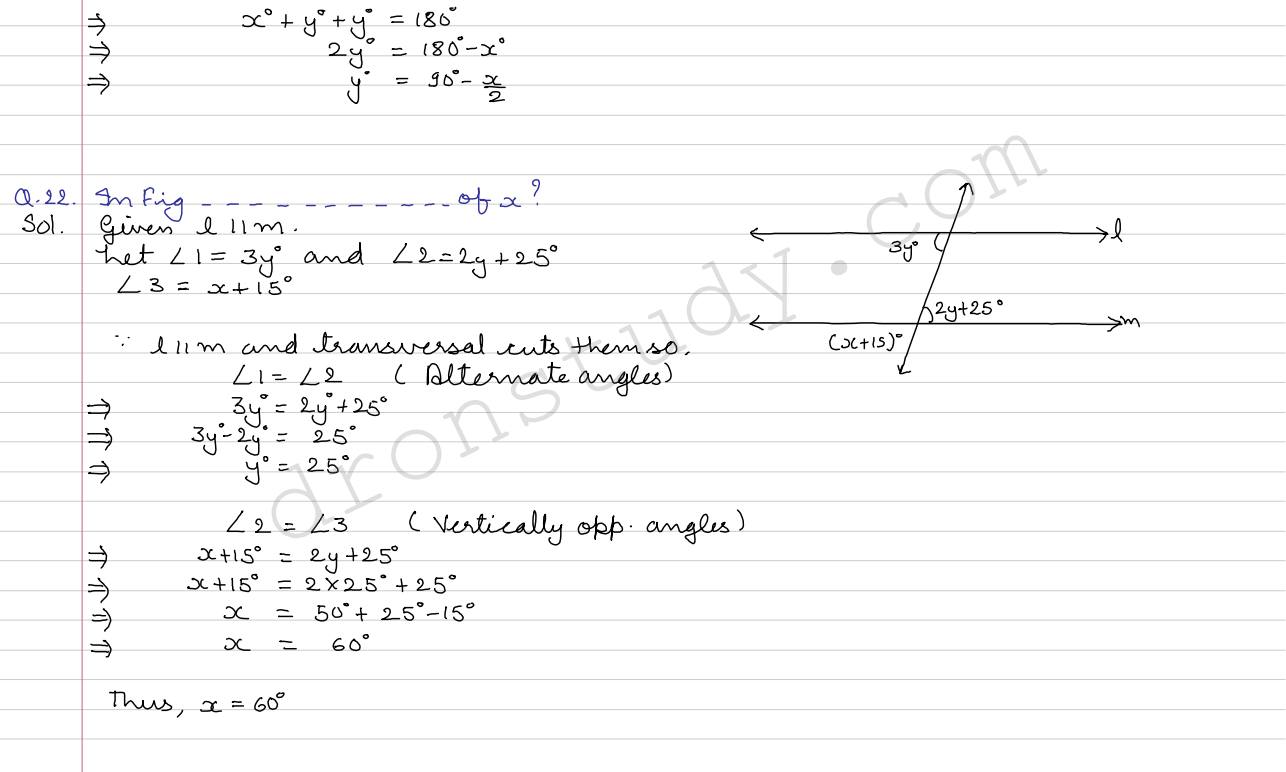 ⇒ x° + y° + y° = 180°
⇒ 2y° = 180° - x°
⇒ y° = 90° - x/2
Q.22. In Fig - - - - - - - - - - - of x?
Sol. Given l || m.
Let ∠1 = 3y° and ∠2 = 2y + 25°
∠3 = x + 15°
∵ l || m and transversal cuts them so.
∠1 = ∠2 (Alternate angles)
⇒ 3y° = 2y° + 25°
⇒ 3y° - 2y° = 25°
⇒ y° = 25°
∠2 = ∠3 (Vertically opp. angles)
⇒ x + 15° = 2y + 25°
⇒ x + 15° = 2 × 25° + 25°
⇒ x = 50° + 25° - 15°
⇒ x = 60°
Thus, x = 60°
l
3y°
2y+25°
m
(x+15)°
dronstudy.com